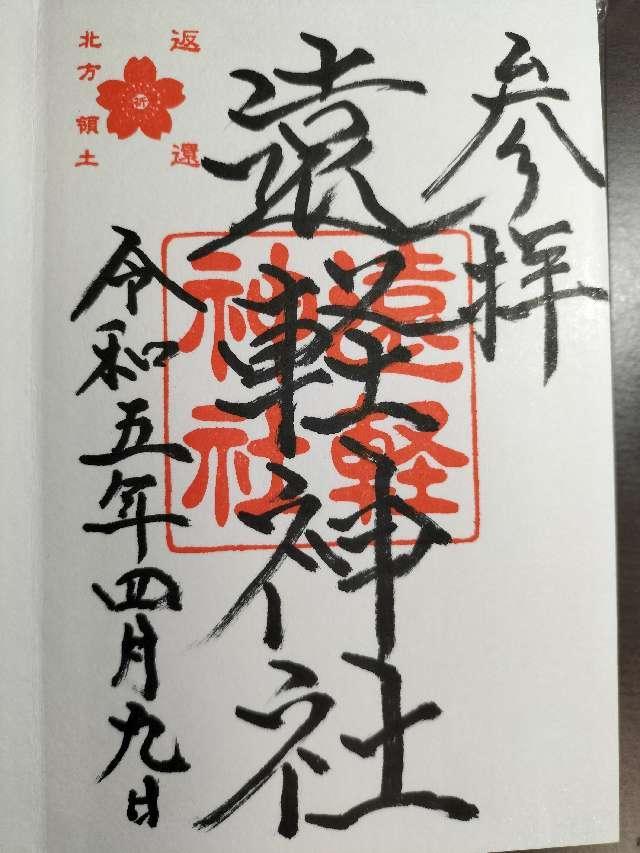 参拝
遠軽神社
遠軽
神社
令和五年四月九日
返還
祈
北方領土